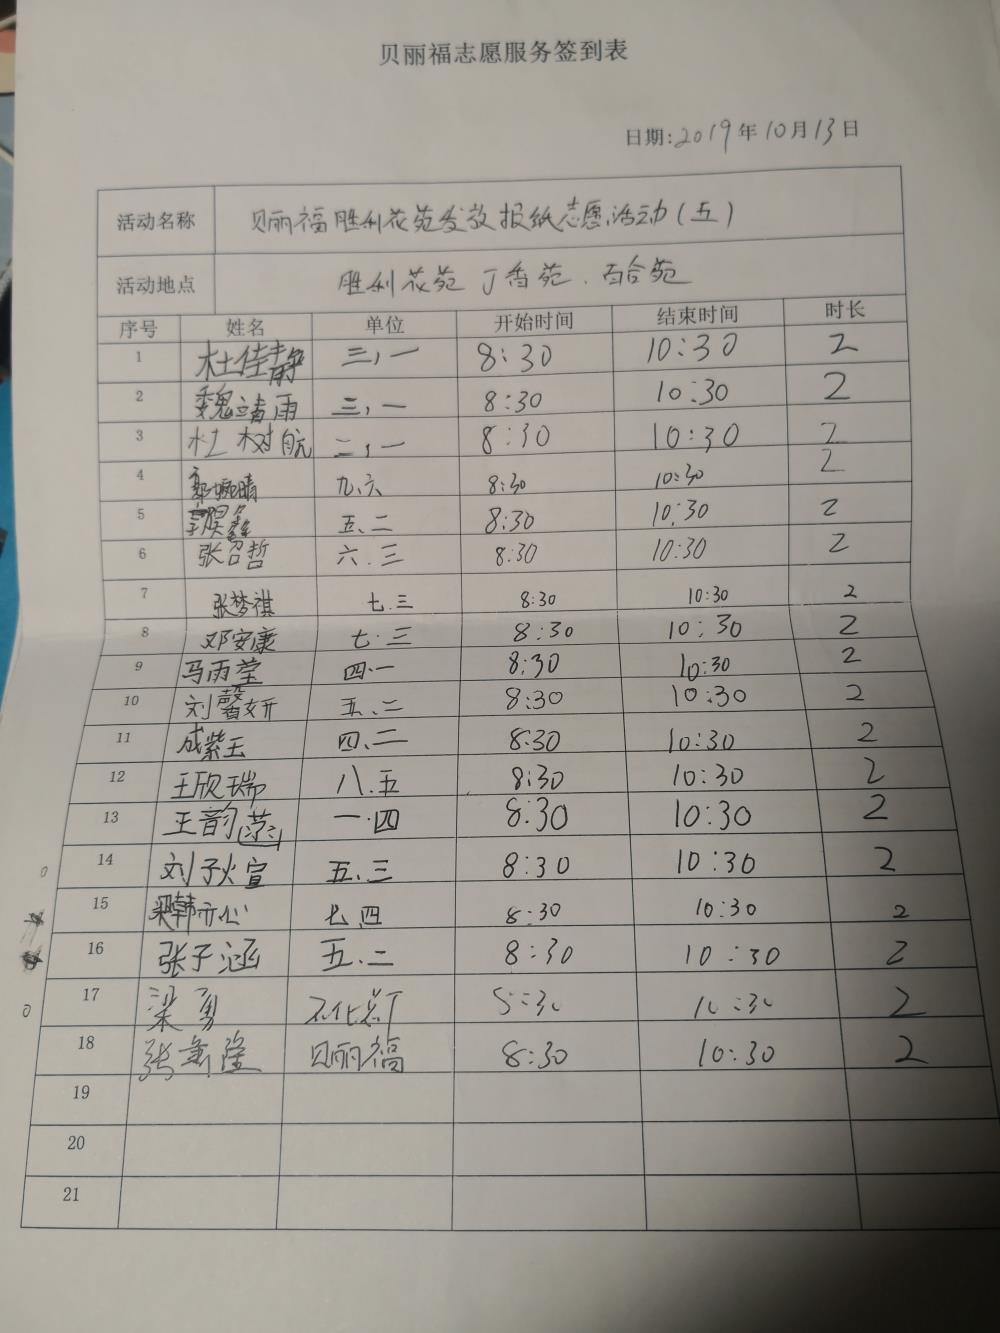 贝丽福志愿服务签到表
日期:2019年10月13日
活动名称 贝丽福胜利花苑发放报纸志愿活动(五)
活动地点 胜利花苑 丁香苑、百合苑
序号 姓名 单位 开始时间 结束时间 时长
1 杜佳静 三,一 8:30 10:30 2
2 魏靖雨 三,一 8:30 10:30 2
3 杜树航 二,一 8:30 10:30 2
4 郭婉晴 九.六 8:30 10:30 2
5 五、二 8:30 10:30 2
6 张召哲 六.三 8:30 10:30 2
7 张梦祺 七.三 8:30 10:30 2
8 邓安康 七.三 8:30 10:30 2
9 马雨莹 四.一 8:30 10:30 2
10 刘馨妍 五、二 8:30 10:30 2
11 成紫玉 四、二 8:30 10:30 2
12 王欣瑞 八.五 8:30 10:30 2
13 王韵 一.四 8:30 10:30 2
14 刘子狄宣 五、三 8:30 10:30 2
15 韩亦心 七.四 8:30 10:30 2
16 张子涵 五.二 8:30 10:30 2
17 梁勇 石化总厂 8:30 10:30 2
18 张 隆 贝丽福 8:30 10:30 2
19
20
21